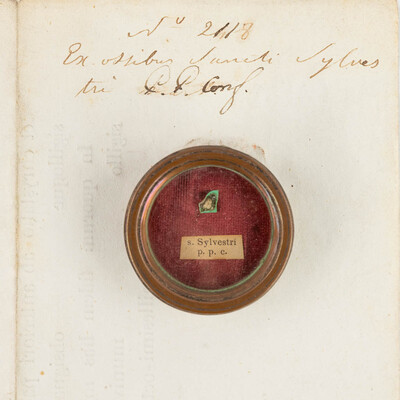 No 2118
Ex ossibus Sancti Sylves
tri P. P. Conf.
s. Sylvestri
p. p. c.